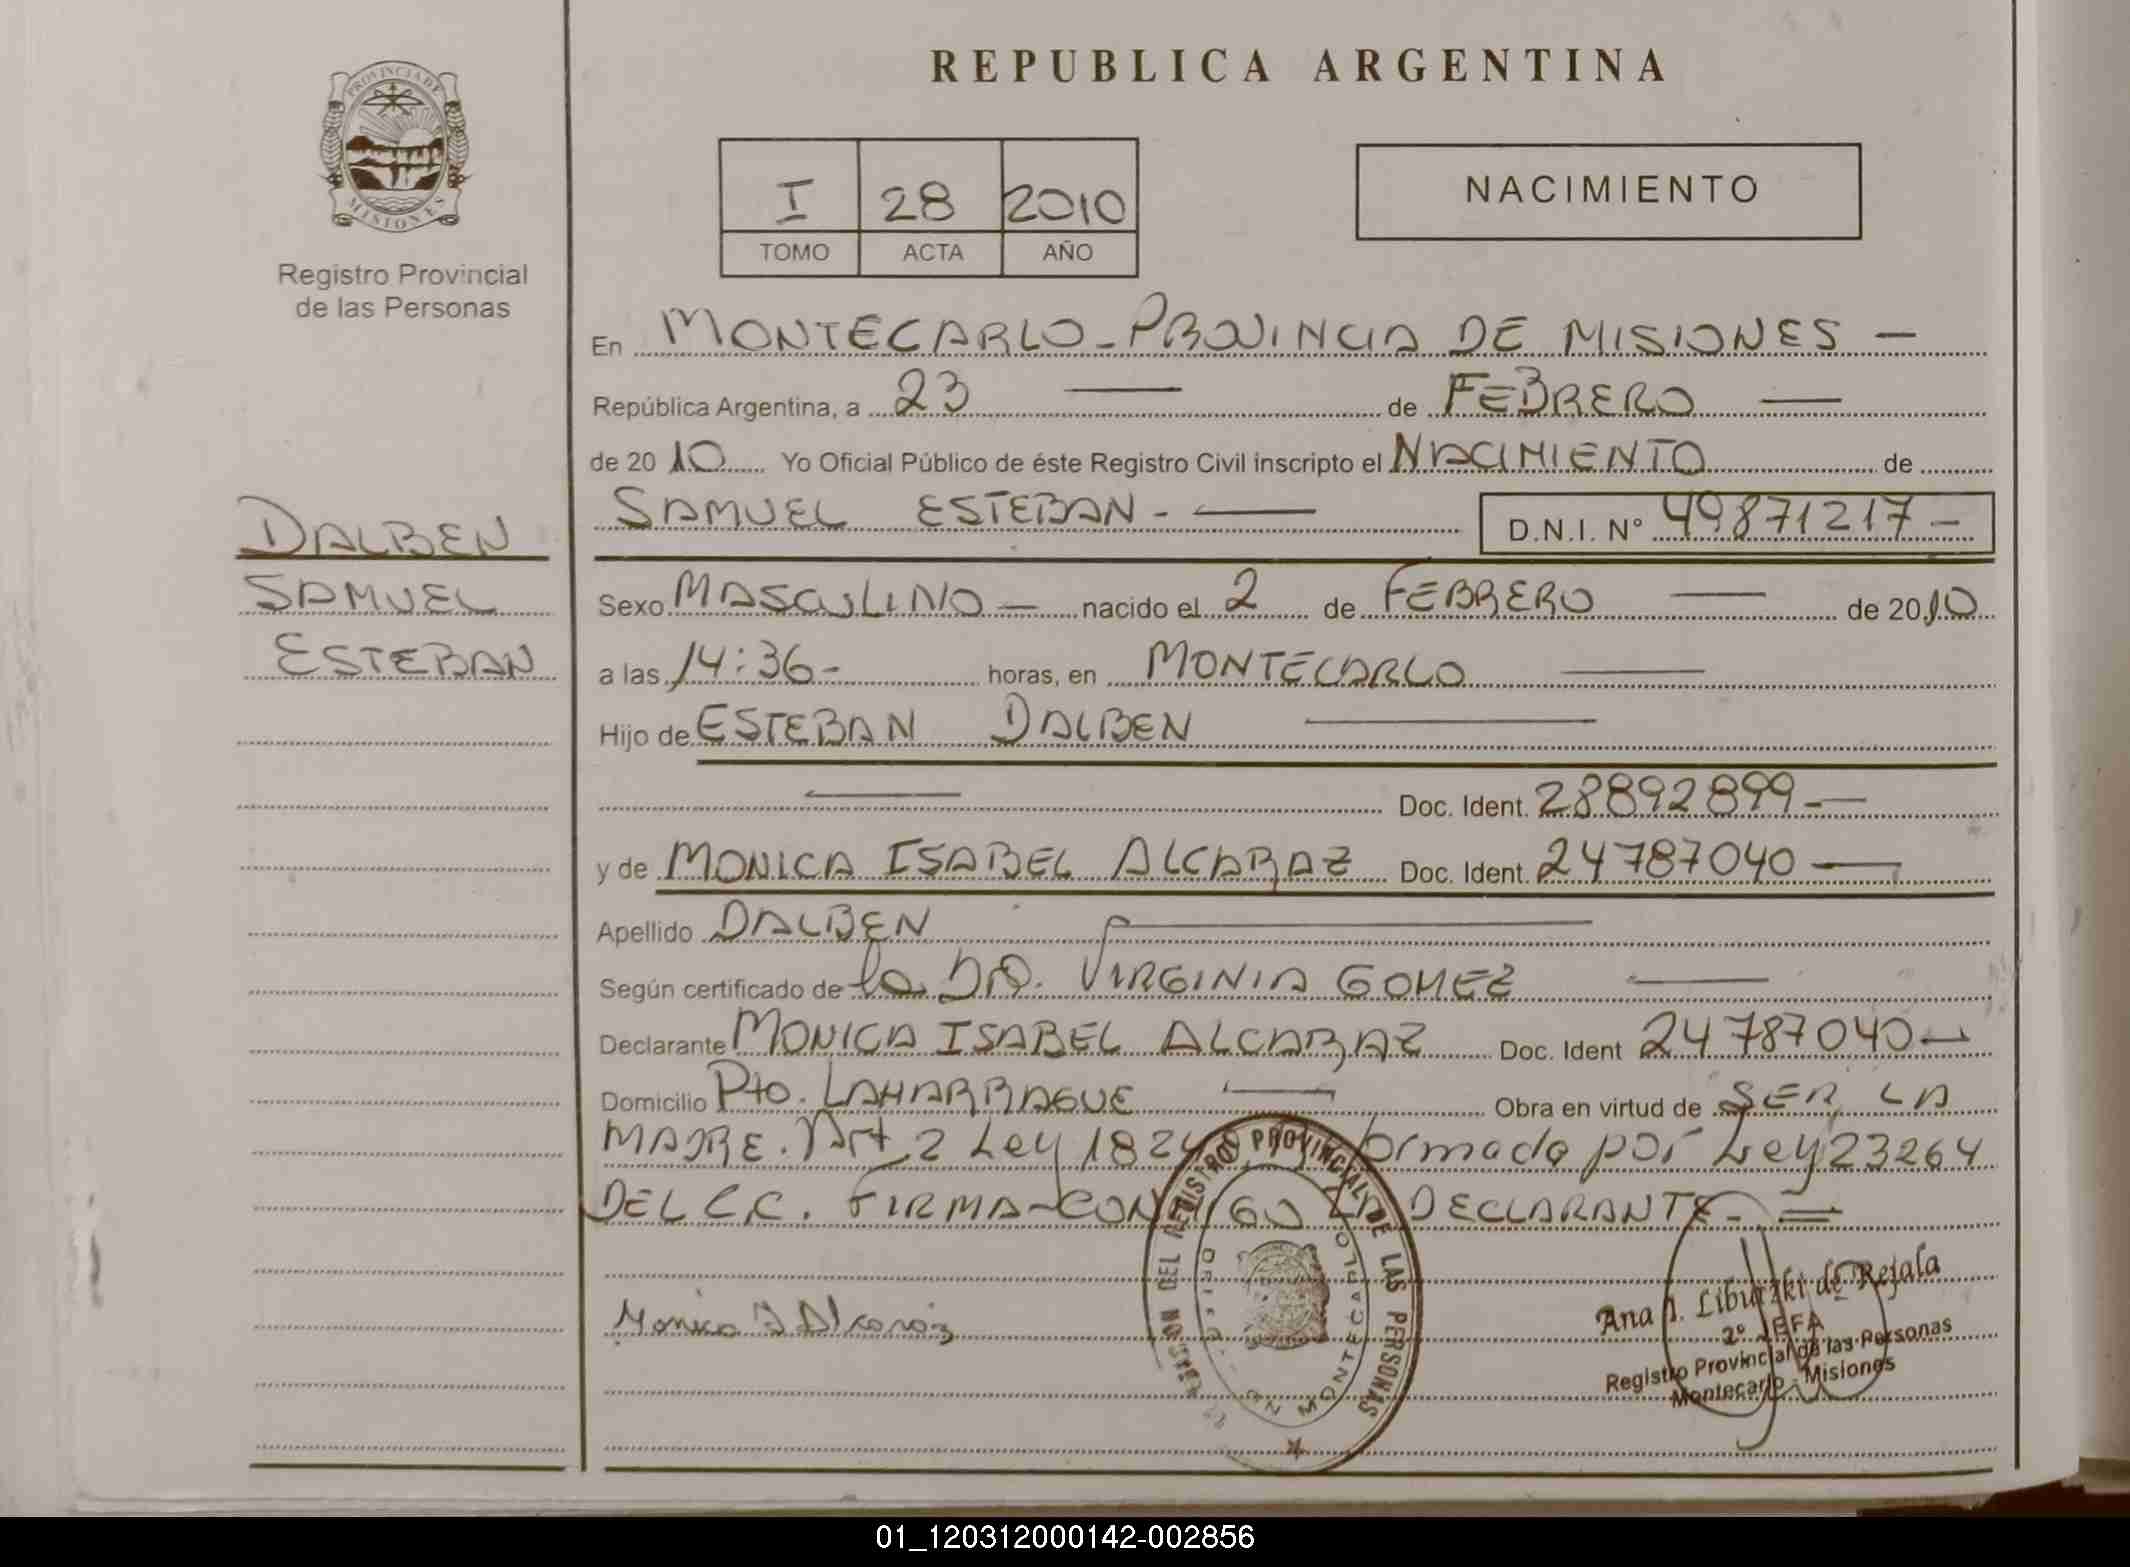 REPUBLICA ARGENTINA
PROVINCIA DE
MISIONES
Registro Provincial
de las Personas
I 28 2010
TOMO ACTA AÑO
NACIMIENTO
En MONTECARLO - PROVINCIA DE MISIONES —
República Argentina, a 23 — de FEBRERO —
de 20 10 Yo Oficial Público de éste Registro Civil inscripto el NACIMIENTO de
SAMUEL ESTEBAN - — D.N.I. N° 49871217 -
DALBEN
SAMUEL
ESTEBAN
Sexo MASCULINO — nacido el 2 de FEBRERO — de 20 10
a las 14:36 - horas, en MONTECARLO —
Hijo de ESTEBAN DALBEN —
— Doc. Ident. 28892899 - —
y de MONICA ISABEL ALCARAZ Doc. Ident. 24787040 —
Apellido DALBEN —
Según certificado de la DRA. VIRGINIA GOMEZ —
Declarante MONICA ISABEL ALCARAZ Doc. Ident 24787040 —
Domicilio Pto. LAHARRAGUE — Obra en virtud de SER LA
MADRE. Art 2 Ley 1824 formado por Ley 23264
DEL C.C. FIRMA CONMIGO LA DECLARANTE - =
Monica I Alcaraz
DEL REGISTRO PROVINCIAL DE LAS PERSONAS
MONTECARLO
Ana I. Liburzki de Rejala
2° JEFA
Registro Provincial de las Personas
Montecarlo - Misiones
01_120312000142-002856